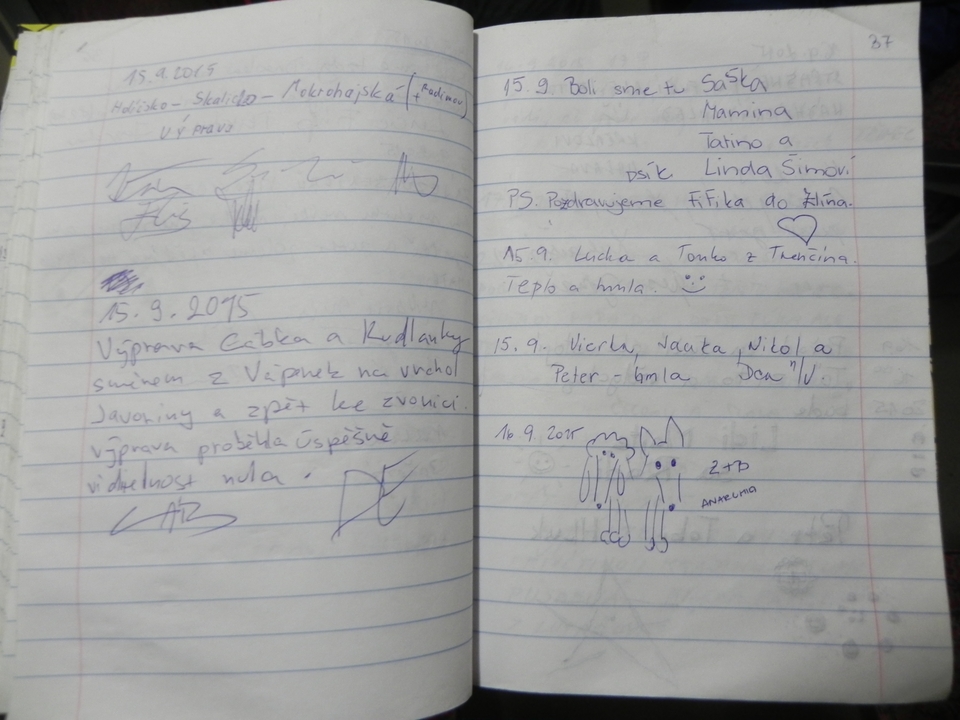 15.9.2015
Holíčsko - Skalicko - Mokrohajská (+Rodinov)
Výprava
15.9.2015
Výprava Gábka a Kudlanky
směrem z Vápenek na vrchol
Javořiny a zpět ke zvonici.
výprava proběhla úspěšně
viditelnost nula.
37
15.9. Boli sme tu Saška
Mamina
Tatino a
psík Linda Šimoví
PS. Pozdravujeme Fifika do Zlína.
15.9. Lucka a Tonko z Trenčína.
Teplo a hmla.
15.9. Vierka, Janka, Nikol a
Peter - hmla Dca n/V.
16.9 2015
Z+D